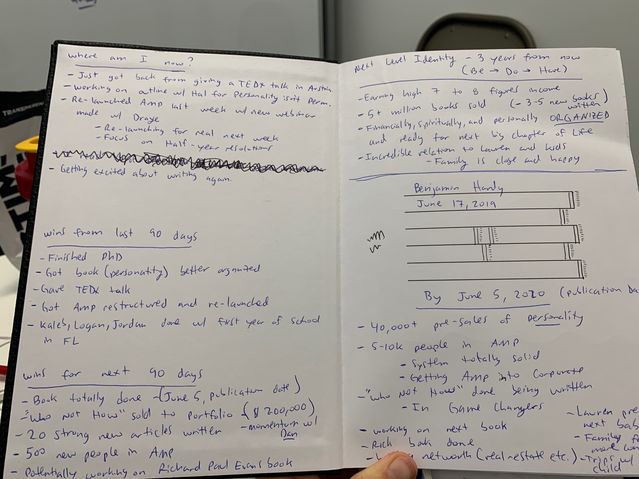 where am I now?
- Just got back from giving a TEDx talk in Austin
- working on outline w/ Hal for Personality isn't Perm.
- Re-launched Amp last week w/ new webinar
made w/ Draye
- Re-launching for real next week
- Focus on Half-year resolutions
- Getting excited about writing again.
wins from last 90 days
- Finished PhD
- Got book (personality) better organized
- Gave TEDx talk
- Got Amp restructured and re-launched
- Kaleb, Logan, Jordan done w/ first year of school
in FL
wins for next 90 days
- Book totally done - (June 5, publication date)
- "Who Not How" sold to Portfolio ($200,000)
- momentum w/
Dan
- 20 strong new articles written
- 500 new people in AMP
- Potentially working on Richard Paul Evans book
Next Level Identity - 3 years from now
(Be → Do → Have)
- Earning high 7 to 8 figures income
- 5+ million books sold (- 3-5 new books written)
- Financially, spiritually, and personally ORGANIZED
and ready for next big chapter of life
- Incredible relation to Lauren and kids
- Family is close and happy
Benjamin Hardy
June 17, 2019
By June 5, 2020 (publication Da
- 40,000+ pre-sales of personality
- 5-10k people in AMP
- System totally solid
- Getting Amp into corporate
- "Who Not How" done being written
- In Game Changers
- working on next book
- Rich book done
networth (real-estate etc.)
- Lauren pre
next bab
- Family f
more con
- Trips w/
child